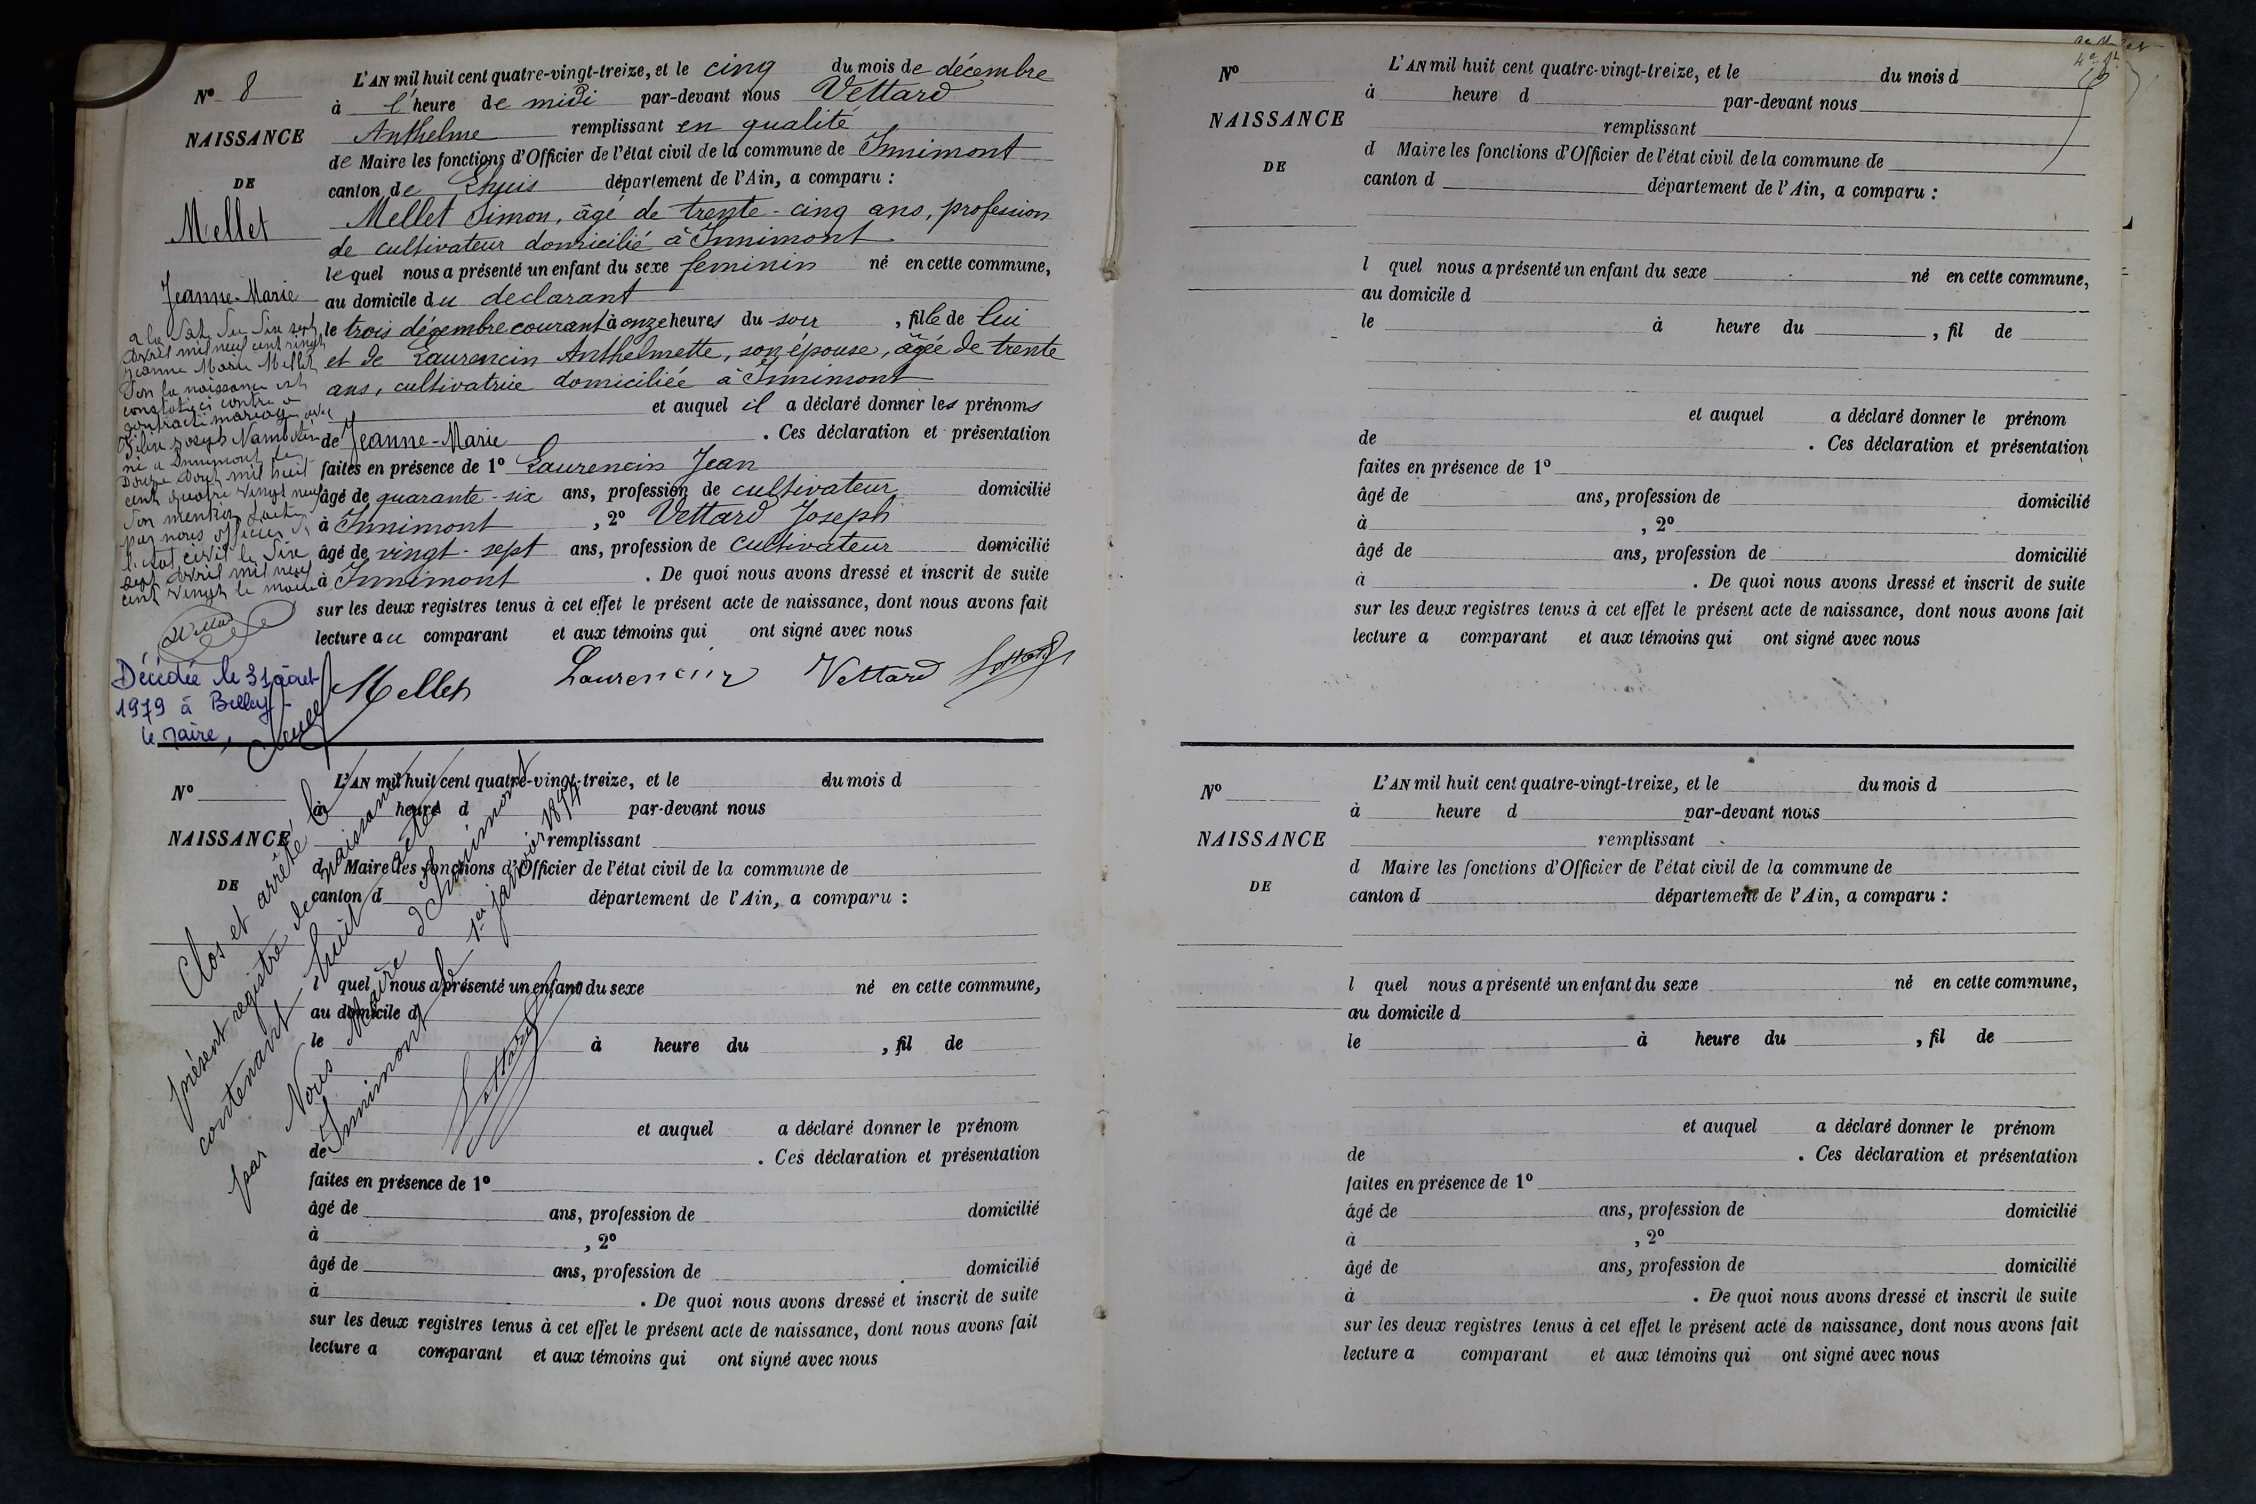 Nº 8
NAISSANCE
DE
Mellet
Jeanne-Marie
L'AN mil huit cent quatre-vingt-treize, et le cinq du mois de décembre
à l'heure de midi par-devant nous Vettard
Anthelme remplissant en qualité
de Maire les fonctions d'Officier de l'état civil de la commune de Innimont
canton de Lhuis département de l'Ain, a comparu :
Mellet Simon, âgé de trente-cinq ans, profession
de cultivateur domicilié à Innimont
lequel nous a présenté un enfant du sexe feminin né en cette commune,
au domicile du declarant
le trois décembre courant à onze heures du soir, fille de lui
et de Laurencin Anthelmette, son épouse, âgée de trente
ans, cultivatrice domiciliée à Innimont
et auquel il a déclaré donner les prénoms
de Jeanne-Marie. Ces déclaration et présentation
faites en présence de 1º Laurencin Jean
âgé de quarante-six ans, profession de cultivateur domicilié
à Innimont, 2º Vettard Joseph
âgé de vingt-sept ans, profession de cultivateur domicilié
à Innimont. De quoi nous avons dressé et inscrit de suite
sur les deux registres tenus à cet effet le présent acte de naissance, dont nous avons fait
lecture au comparant et aux témoins qui ont signé avec nous
Mellet Laurencin Vettard Vettard
a la date du dix sept
avril mil neuf cent vingt
Jeanne Marie Mellet
don la naissance est
constatée ci contre a
contracté mariage avec
Joseph
né a Innimont le
Douze aout mil huit
cent quatre vingt neuf
don mention faite
par nous officier de
l'etat civil le dix
sept avril mil neuf
cent vingt le maire
Vettard
Décédée le 31 août
1979 à Belley
le Maire,
Nº
NAISSANCE
DE
L'AN mil huit cent quatre-vingt-treize, et le du mois d
à heure d par-devant nous
remplissant
d Maire les fonctions d'Officier de l'état civil de la commune de
canton d département de l'Ain, a comparu :
l quel nous a présenté un enfant du sexe né en cette commune,
au domicile d
le à heure du , fil de
et auquel a déclaré donner le prénom
de . Ces déclaration et présentation
faites en présence de 1º
âgé de ans, profession de domicilié
à , 2º
âgé de ans, profession de domicilié
à . De quoi nous avons dressé et inscrit de suite
sur les deux registres tenus à cet effet le présent acte de naissance, dont nous avons fait
lecture a comparant et aux témoins qui ont signé avec nous
Clos et arrêté le
présent registre de naissance
contenant huit actes
par Nous Maire d'Innimont
Innimont le 1er janvier 1894
Vettard
Nº
NAISSANCE
DE
L'AN mil huit cent quatre-vingt-treize, et le du mois d
à heure d par-devant nous
remplissant
d Maire les fonctions d'Officier de l'état civil de la commune de
canton d département de l'Ain, a comparu :
l quel nous a présenté un enfant du sexe né en cette commune,
au domicile d
le à heure du , fil de
et auquel a déclaré donner le prénom
de . Ces déclaration et présentation
faites en présence de 1º
âgé de ans, profession de domicilié
à , 2º
âgé de ans, profession de domicilié
à . De quoi nous avons dressé et inscrit de suite
sur les deux registres tenus à cet effet le présent acte de naissance, dont nous avons fait
lecture a comparant et aux témoins qui ont signé avec nous
Nº
NAISSANCE
DE
L'AN mil huit cent quatre-vingt-treize, et le du mois d
à heure d par-devant nous
remplissant
d Maire les fonctions d'Officier de l'état civil de la commune de
canton d département de l'Ain, a comparu :
l quel nous a présenté un enfant du sexe né en cette commune,
au domicile d
le à heure du , fil de
et auquel a déclaré donner le prénom
de . Ces déclaration et présentation
faites en présence de 1º
âgé de ans, profession de domicilié
à , 2º
âgé de ans, profession de domicilié
à . De quoi nous avons dressé et inscrit de suite
sur les deux registres tenus à cet effet le présent acte de naissance, dont nous avons fait
lecture a comparant et aux témoins qui ont signé avec nous